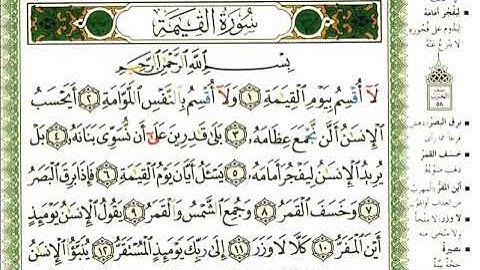 سُورَةُ القِيَٰمَةِ
بِسْمِ ٱللَّهِ ٱلرَّحْمَٰنِ ٱلرَّحِيمِ
لَآ أُقْسِمُ بِيَوْمِ ٱلْقِيَٰمَةِ ١ وَلَآ أُقْسِمُ بِٱلنَّفْسِ ٱللَّوَّامَةِ ٢ أَيَحْسَبُ
ٱلْإِنسَٰنُ أَلَّن نَّجْمَعَ عِظَامَهُۥ ٣ بَلَىٰ قَٰدِرِينَ عَلَىٰٓ أَن نُّسَوِّىَ بَنَانَهُۥ ٤ بَلْ
يُرِيدُ ٱلْإِنسَٰنُ لِيَفْجُرَ أَمَامَهُۥ ٥ يَسْـَٔلُ أَيَّانَ يَوْمُ ٱلْقِيَٰمَةِ ٦ فَإِذَا بَرِقَ ٱلْبَصَرُ
٧ وَخَسَفَ ٱلْقَمَرُ ٨ وَجُمِعَ ٱلشَّمْسُ وَٱلْقَمَرُ ٩ يَقُولُ ٱلْإِنسَٰنُ يَوْمَئِذٍ
أَيْنَ ٱلْمَفَرُّ ١٠ كَلَّا لَا وَزَرَ ١١ إِلَىٰ رَبِّكَ يَوْمَئِذٍ ٱلْمُسْتَقَرُّ ١٢ يُنَبَّؤُا۟ ٱلْإِنسَٰنُ
لِيَفْجُرَ أَمَامَهُ
لِيَدُومَ عَلَى فُجُورِهِ
لا يَنْزِعُ عَنْهُ
٥٨
بَرِقَ البَصَرُ
خَسَفَ القَمَرُ
ذهب ضوءه
أَيْنَ المَفَرُّ
لَا وَزَرَ
بَصِيرَةٌ